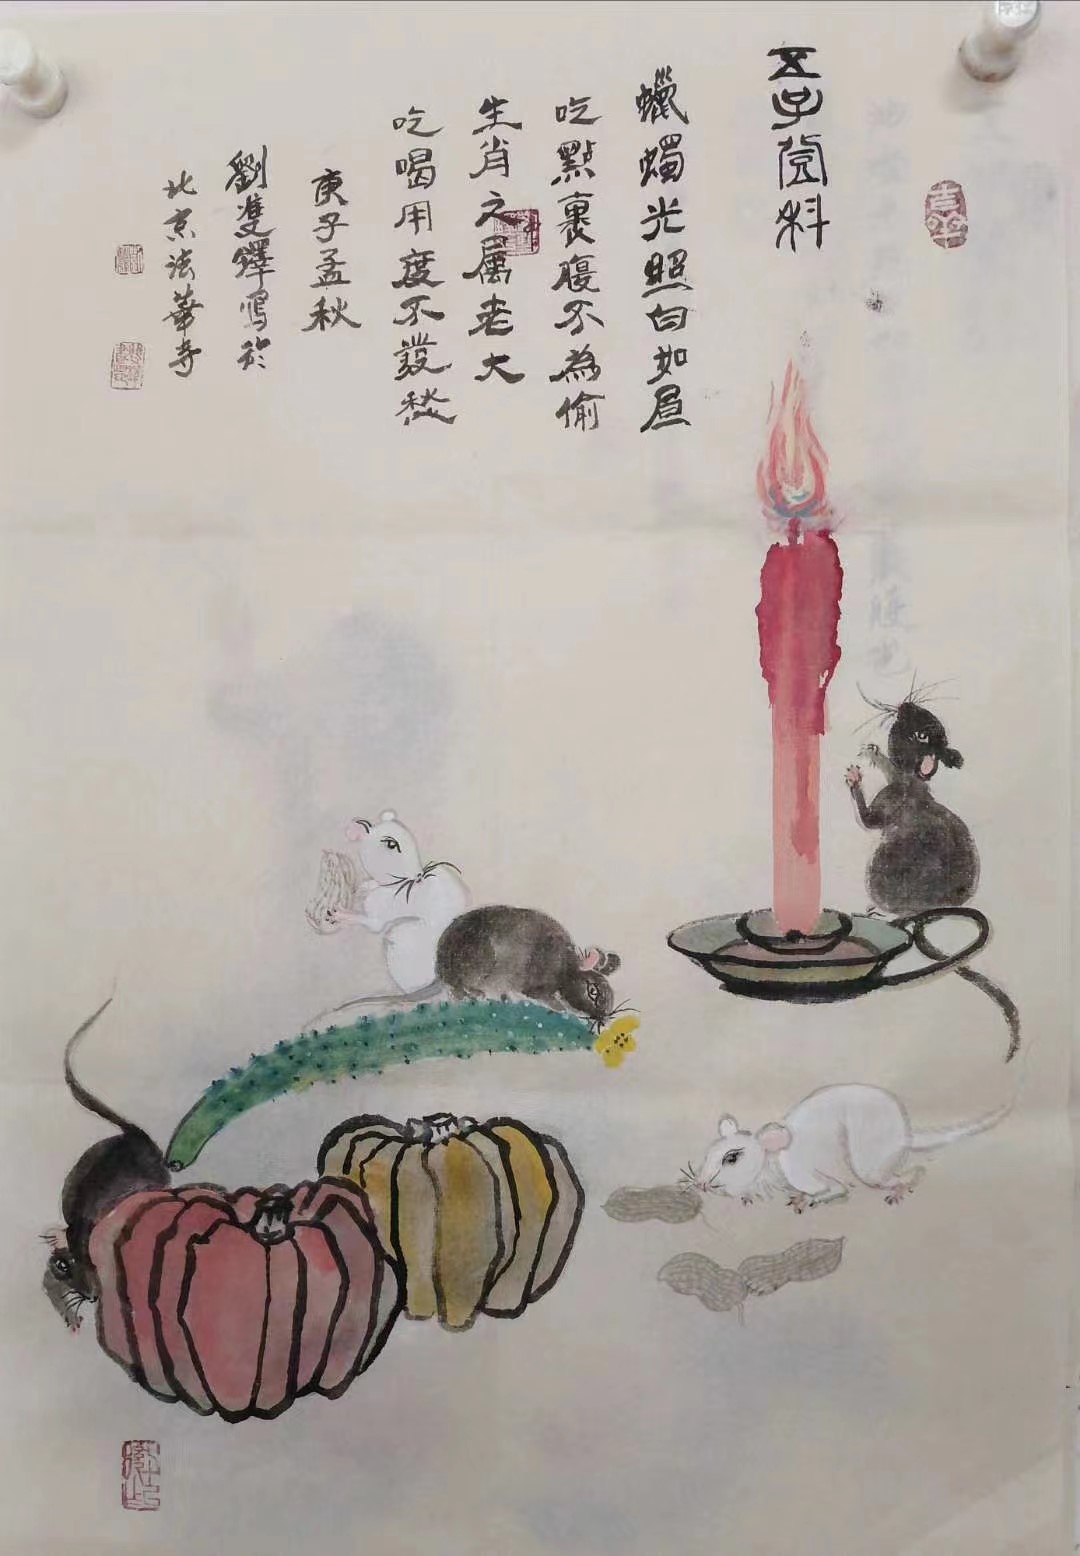 五子登科
蠟燭光照白如昼
吃點裹腹不為偷
生肖之属老大
吃喝用度不發愁
庚子孟秋
劉雙鐸寫於
北京法華寺